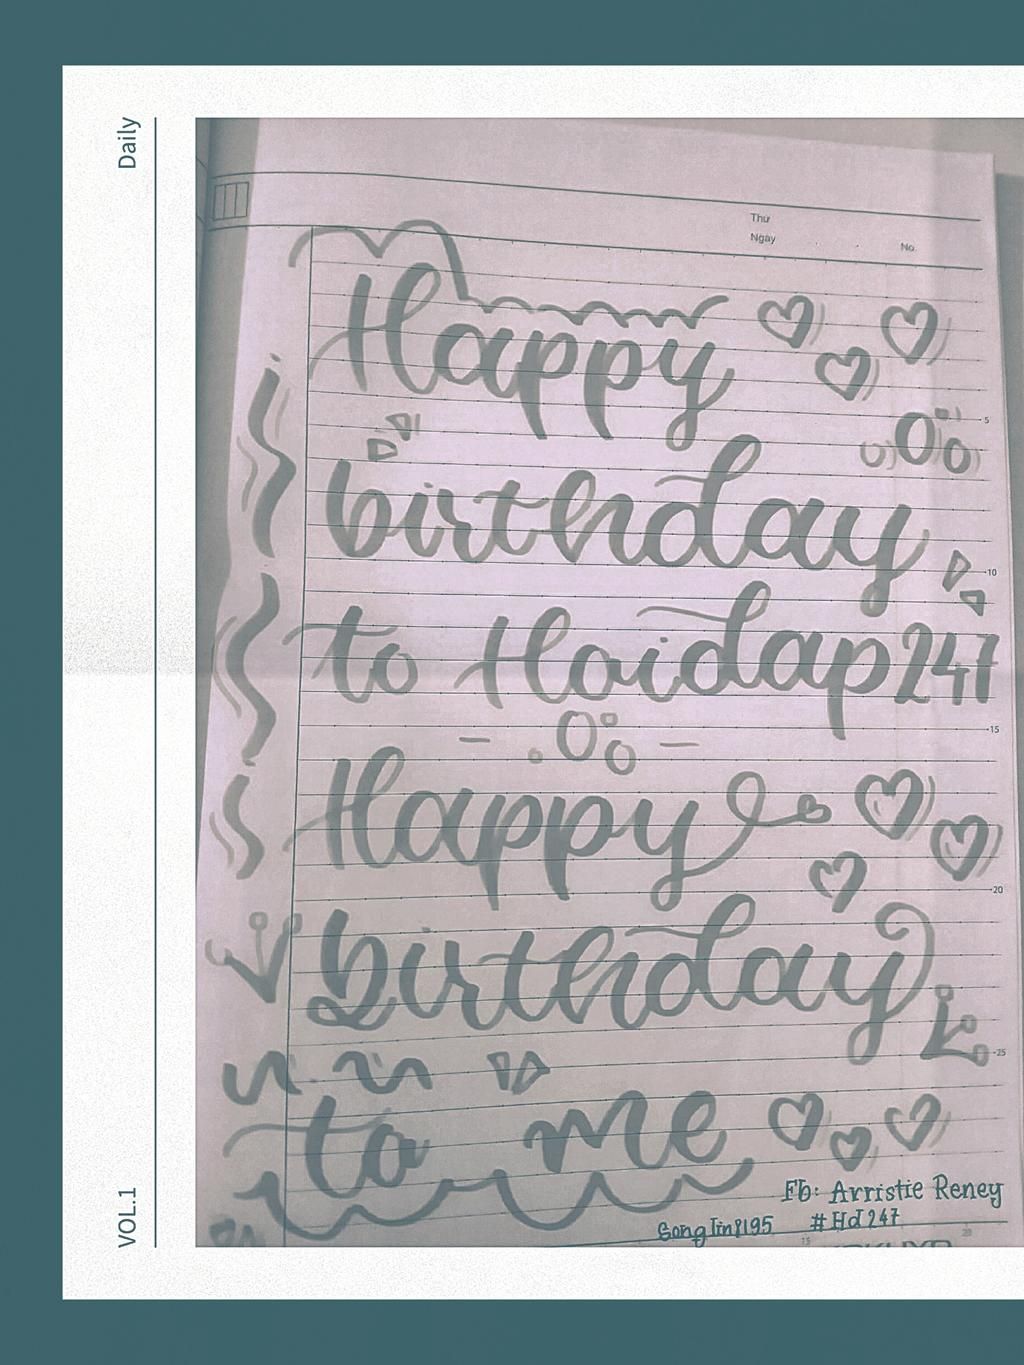 Daily
Thứ
Ngày
No.
Happy
5
birthday
10
to Hoidap247
15
Happy
20
birthday
25
to me
Fb: Arristie Reney
#Hd247
15
20
VOL.1